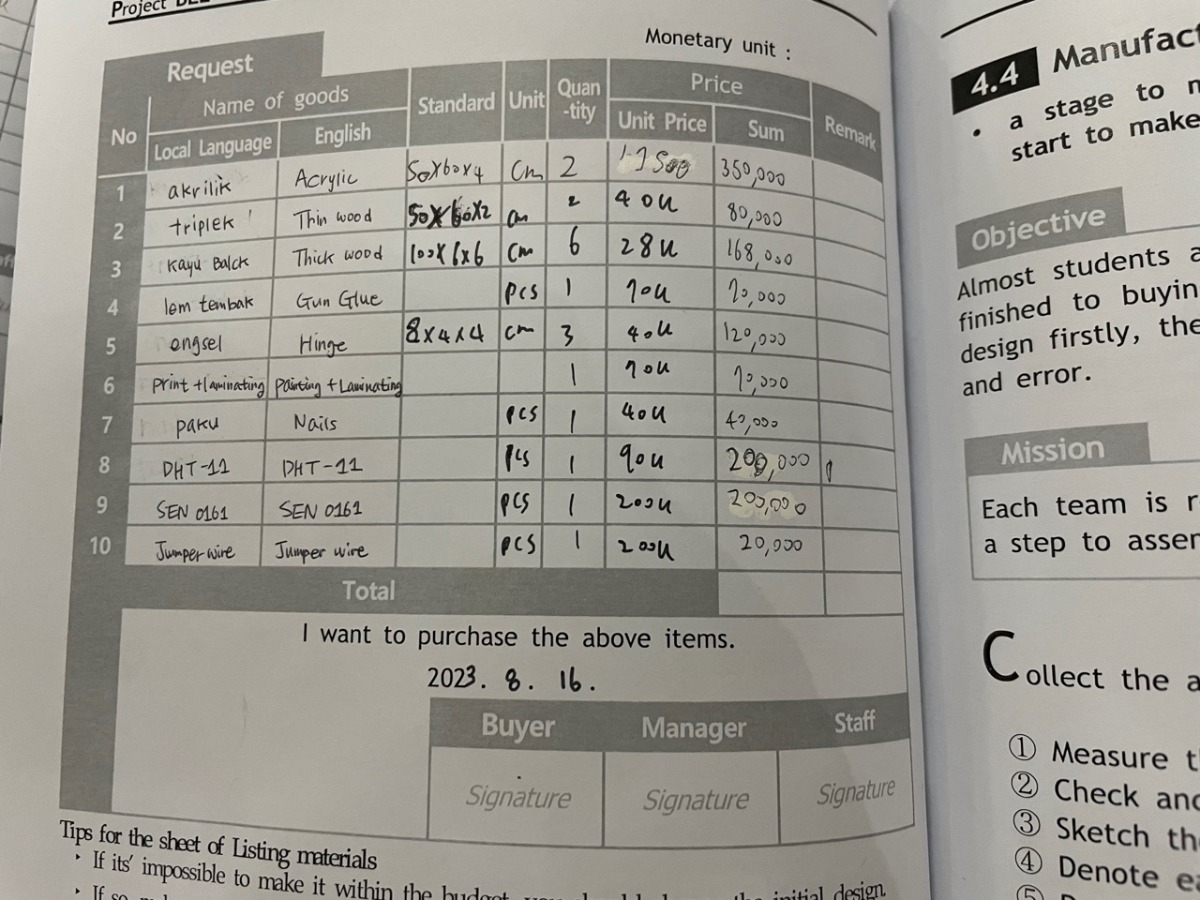 Project
Monetary unit :
Request
No Name of goods Standard Unit Quan-tity Price Remark
Local Language English Unit Price Sum
1 akrilik Acrylic 50x60x4 Cm 2 350,000
2 triplek Thin wood 50x60x2 cm 2 40k 80,000
3 kayu Balck Thick wood 100x6x6 cm 6 28k 168,000
4 lem tembak Gun Glue pcs 1
5 engsel Hinge 8x4x4 cm 3 40k 120,000
6 print + laminating painting + Laminating 1
7 paku Nails pcs 1 40k 40,000
8 DHT-11 DHT-11 pcs 1 90k 200,000
9 SEN 0161 SEN 0161 pcs 1 200k 200,000
10 Jumper wire Jumper wire pcs 1 200k 20,000
Total
I want to purchase the above items.
2023. 8. 16.
Buyer Manager Staff
Signature Signature Signature
Tips for the sheet of Listing materials
• If its' impossible to make it within the budget, you should change the initial design.
• If so
4.4 Manufact
• a stage to
start to make
Objective
Almost students a
finished to buyin
design firstly, the
and error.
Mission
Each team is r
a step to assem
Collect the a
① Measure t
② Check and
③ Sketch th
④ Denote ea
⑤